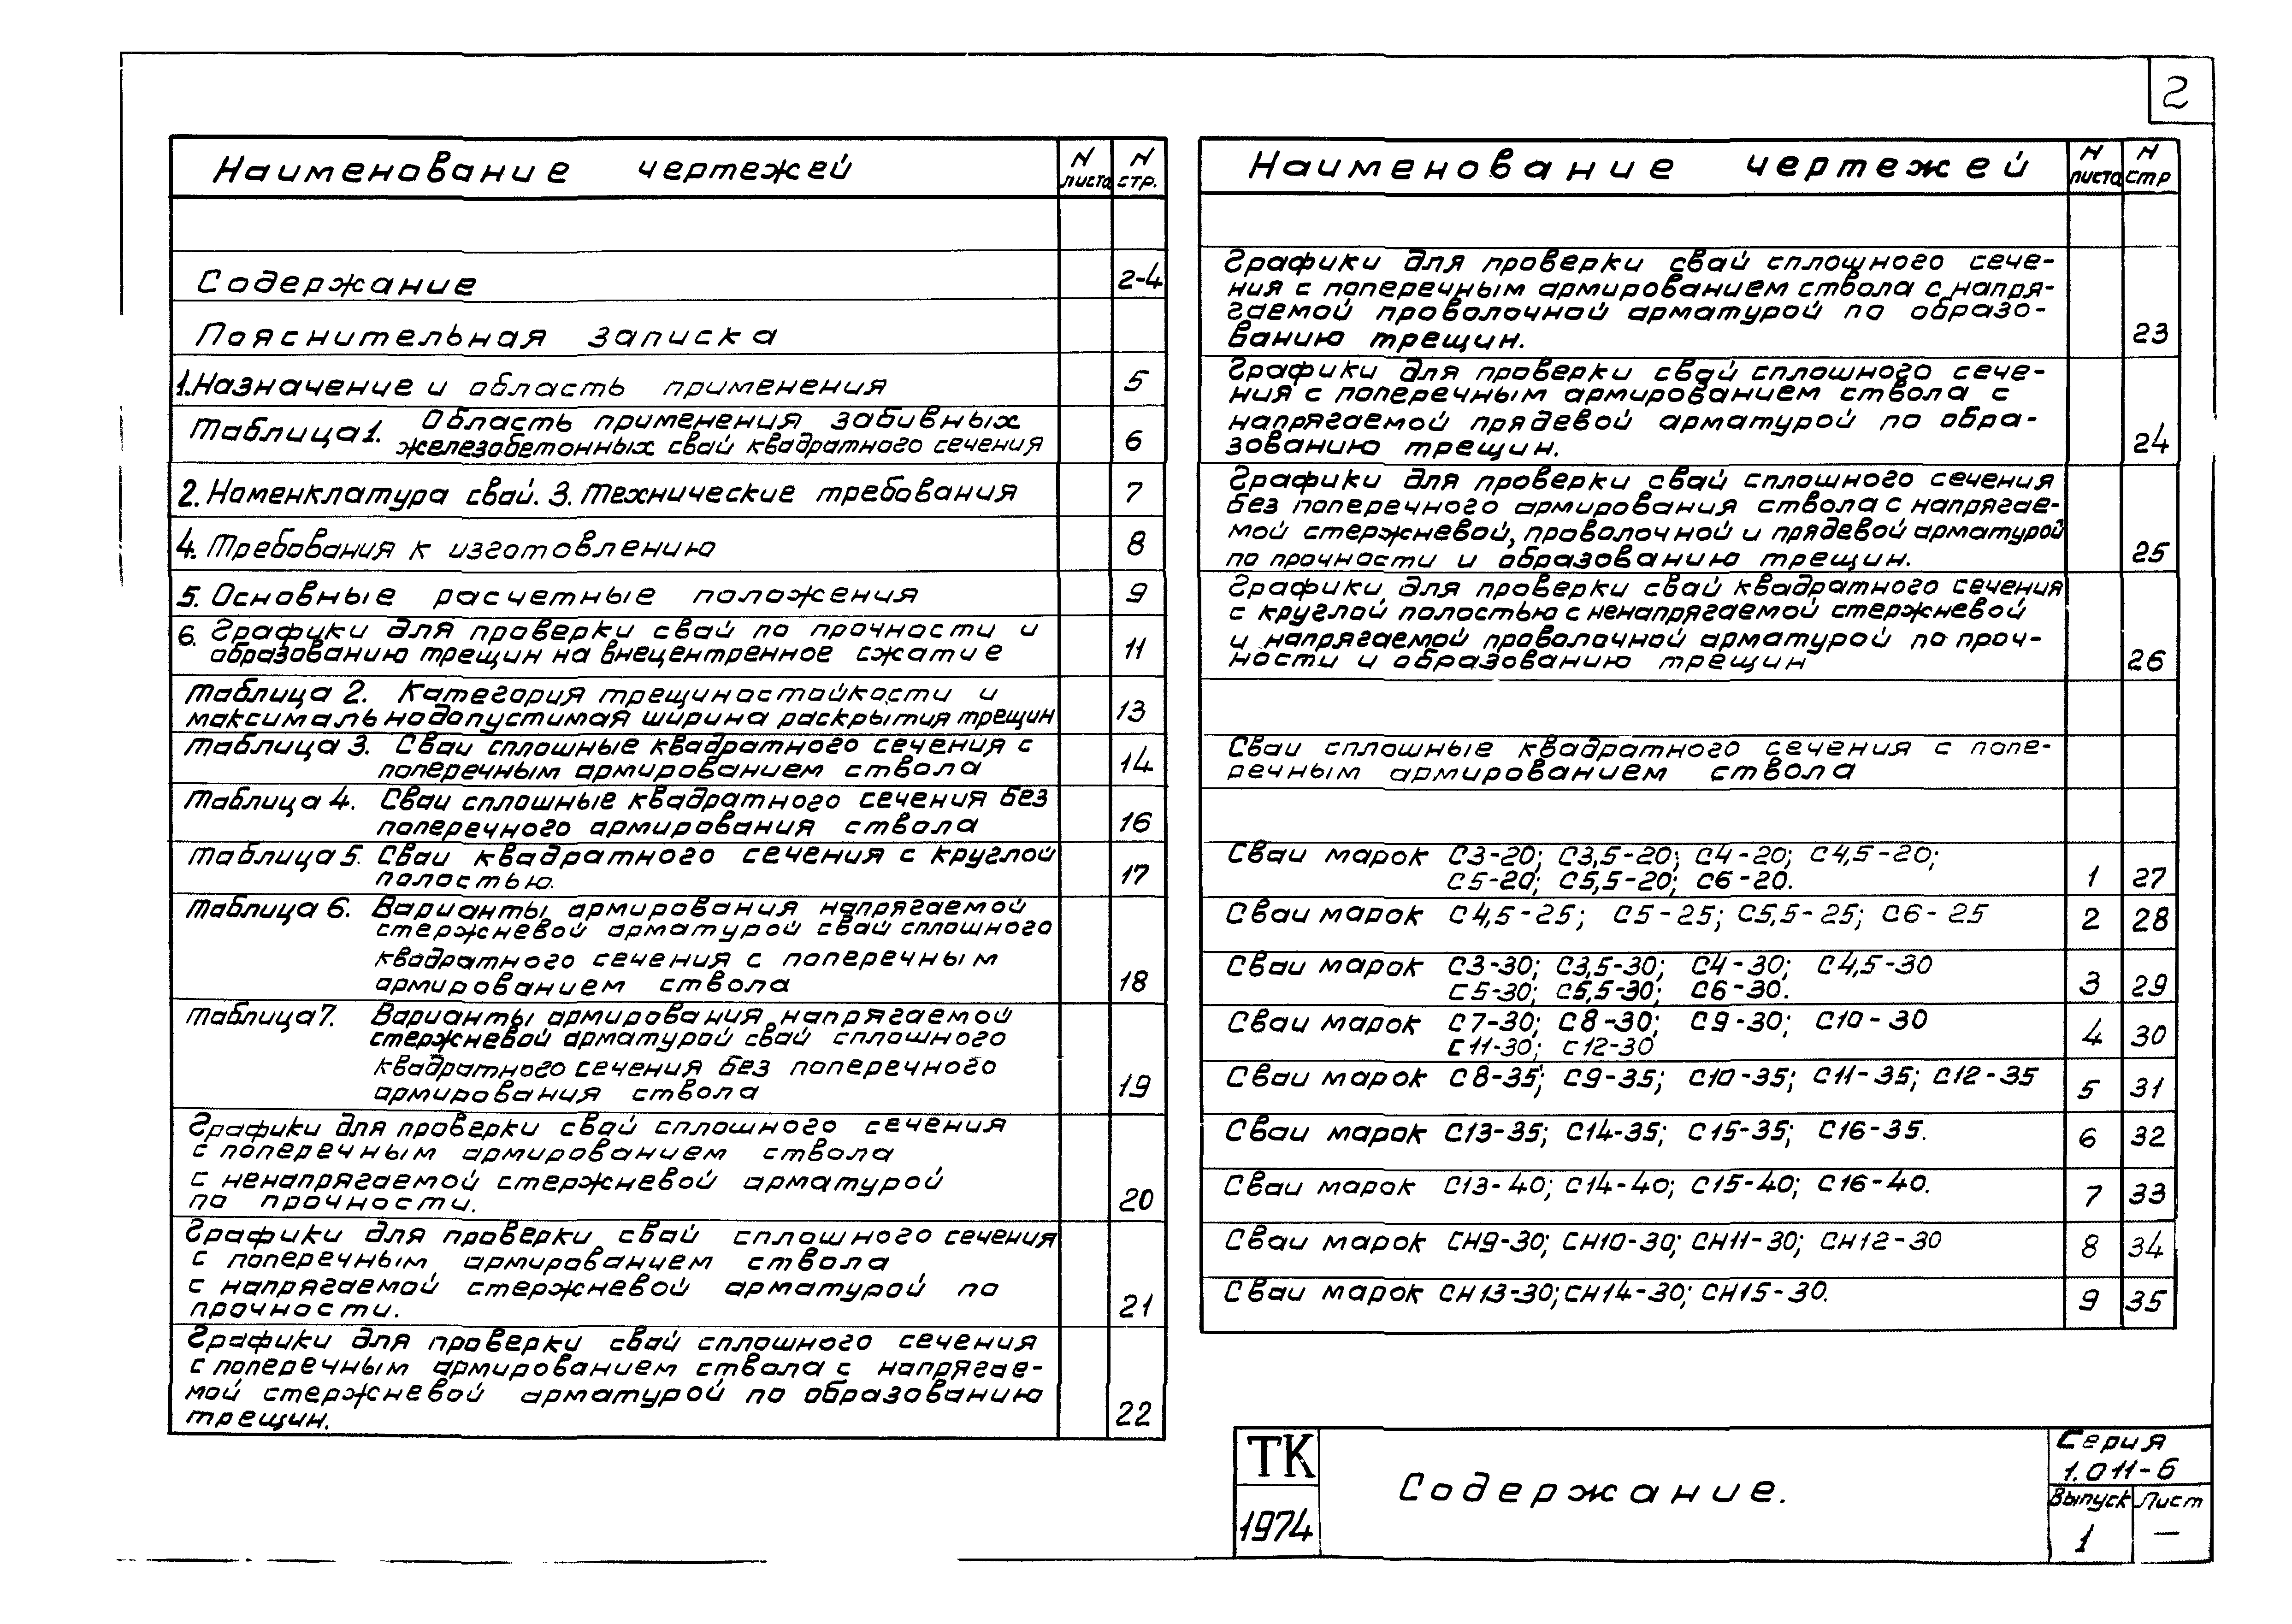 2
Наименование чертежей
N листа
N стр.
Содержание 2-4
Пояснительная записка
1. Назначение и область применения 5
Таблица 1. Область применения забивных
железобетонных свай квадратного сечения 6
2. Номенклатура свай. 3. Технические требования 7
4. Требования к изготовлению 8
5. Основные расчетные положения 9
6. Графики для проверки свай по прочности и
образованию трещин на внецентренное сжатие 11
Таблица 2. Категория трещиностойкости и
максимально допустимая ширина раскрытия трещин 13
Таблица 3. Сваи сплошные квадратного сечения с
поперечным армированием ствола 14
Таблица 4. Сваи сплошные квадратного сечения без
поперечного армирования ствола 16
Таблица 5. Сваи квадратного сечения с круглой
полостью. 17
Таблица 6. Варианты армирования напрягаемой
стержневой арматурой свай сплошного
квадратного сечения с поперечным
армированием ствола 18
Таблица 7. Варианты армирования напрягаемой
стержневой арматурой свай сплошного
квадратного сечения без поперечного
армирования ствола 19
Графики для проверки свай сплошного сечения
с поперечным армированием ствола
с ненапрягаемой стержневой арматурой
по прочности. 20
Графики для проверки свай сплошного сечения
с поперечным армированием ствола
с напрягаемой стержневой арматурой по
прочности. 21
Графики для проверки свай сплошного сечения
с поперечным армированием ствола с напрягае-
мой стержневой арматурой по образованию
трещин. 22
Наименование чертежей
N листа
N стр
Графики для проверки свай сплошного сече-
ния с поперечным армированием ствола с напря-
гаемой проволочной арматурой по образо-
ванию трещин. 23
Графики для проверки свай сплошного сече-
ния с поперечным армированием ствола с
напрягаемой прядевой арматурой по обра-
зованию трещин. 24
Графики для проверки свай сплошного сечения
без поперечного армирования ствола с напрягае-
мой стержневой, проволочной и прядевой арматурой
по прочности и образованию трещин. 25
Графики для проверки свай квадратного сечения
с круглой полостью с ненапрягаемой стержневой
и напрягаемой проволочной арматурой по проч-
ности и образованию трещин 26
Сваи сплошные квадратного сечения с попе-
речным армированием ствола
Сваи марок С3-20; С3,5-20; С4-20; С4,5-20;
С5-20; С5,5-20; С6-20. 1 27
Сваи марок С4,5-25; С5-25; С5,5-25; С6-25 2 28
Сваи марок С3-30; С3,5-30; С4-30; С4,5-30
С5-30; С5,5-30; С6-30. 3 29
Сваи марок С7-30; С8-30; С9-30; С10-30
С11-30; С12-30 4 30
Сваи марок С8-35; С9-35; С10-35; С11-35; С12-35 5 31
Сваи марок С13-35; С14-35; С15-35; С16-35. 6 32
Сваи марок С13-40; С14-40; С15-40; С16-40. 7 33
Сваи марок СН9-30; СН10-30; СН11-30; СН12-30 8 34
Сваи марок СН13-30; СН14-30; СН15-30. 9 35
ТК
1974
Содержание.
Серия
1.011-6
Выпуск
1
Лист
—